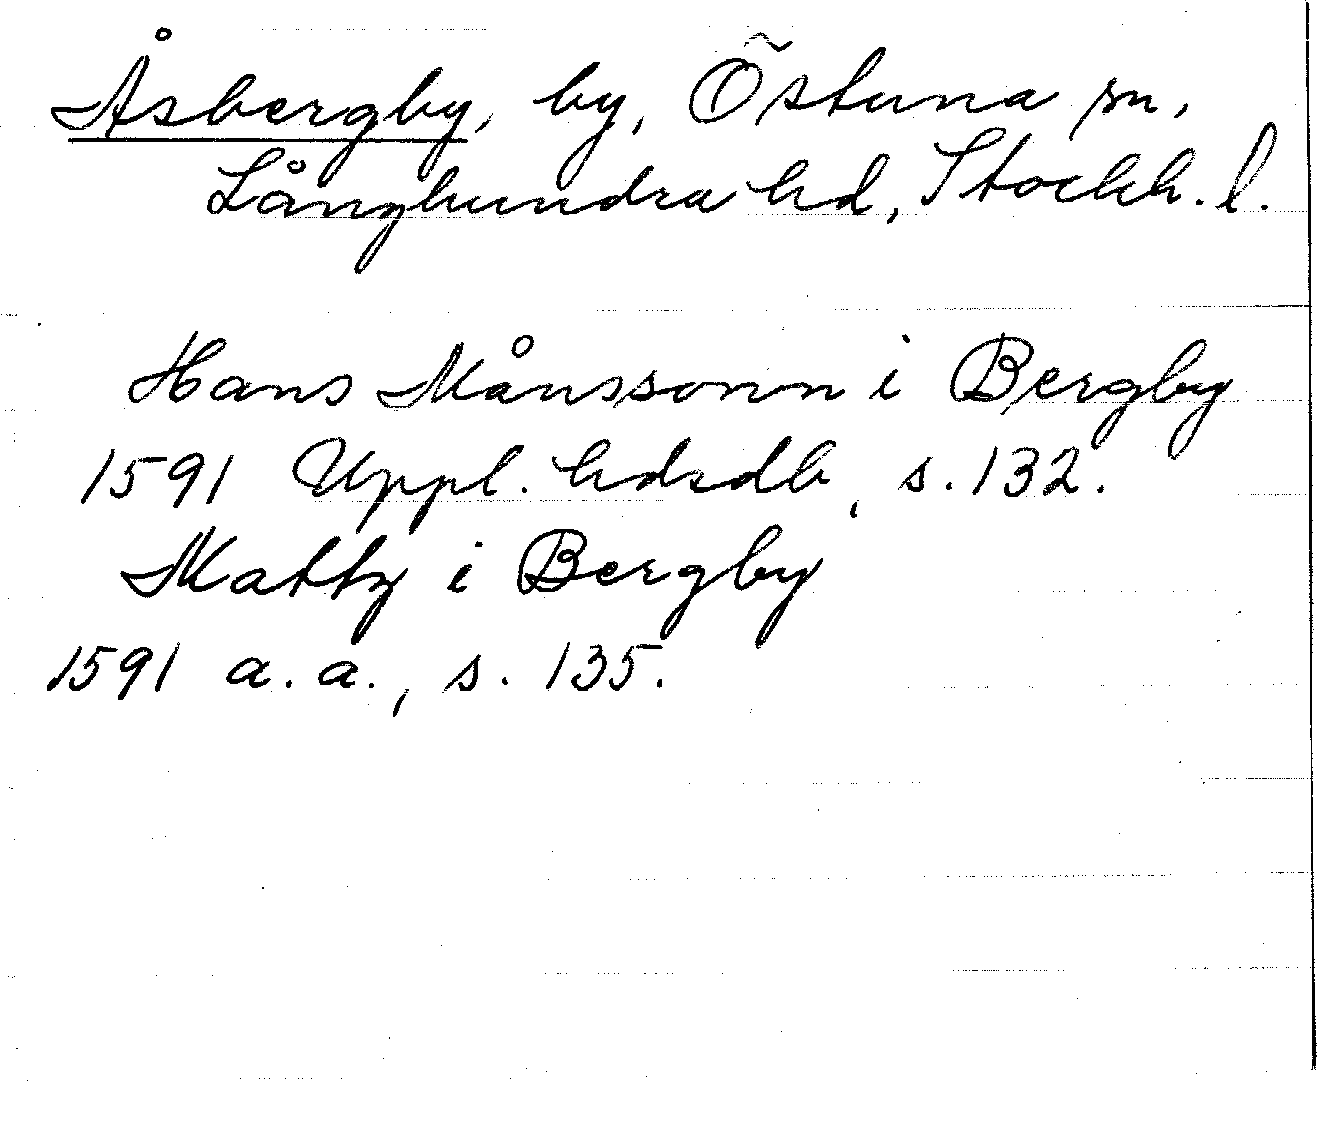 Åsbergby, by, Östuna sn,
Långhundra hd, Stockh. l.
Hans Månssonn i Bergby
1591 Uppl. hdsdb, s. 132.
Mattz i Bergby
1591 a. a., s. 135.